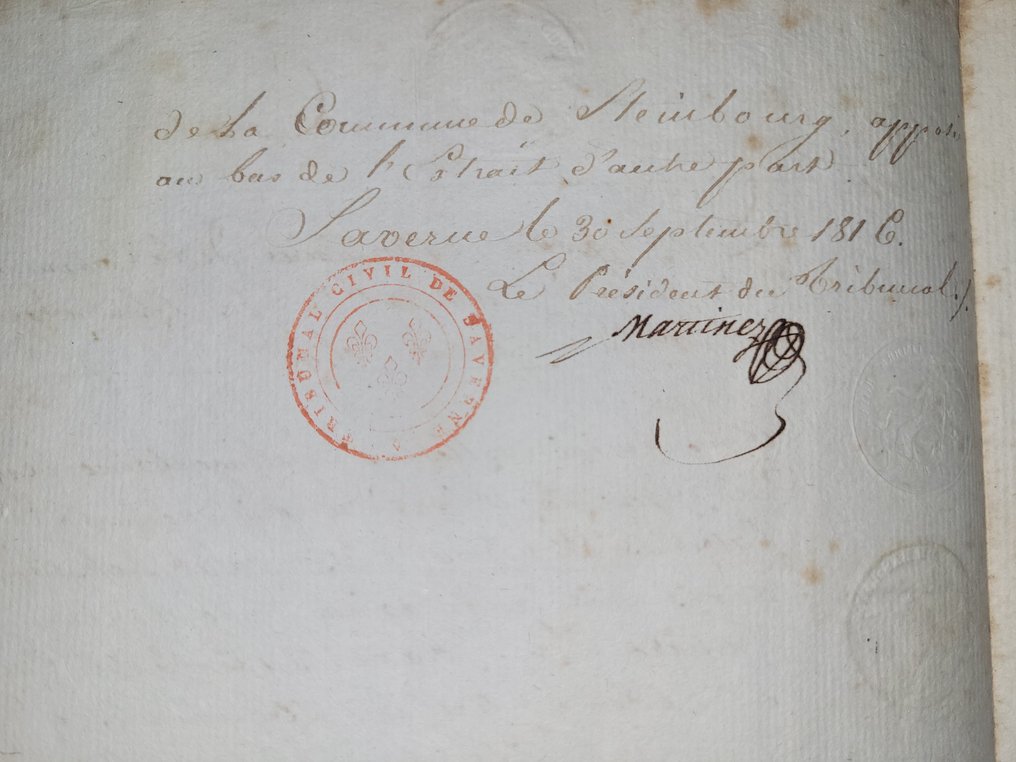 de la Commune de Steinbourg, apposé
au bas de l'Extrait d'autre part.
Saverne le 30 Septembre 1816.
Le Président du Tribunal./.
Martinez
TRIBUNAL CIVIL DE SAVERNE